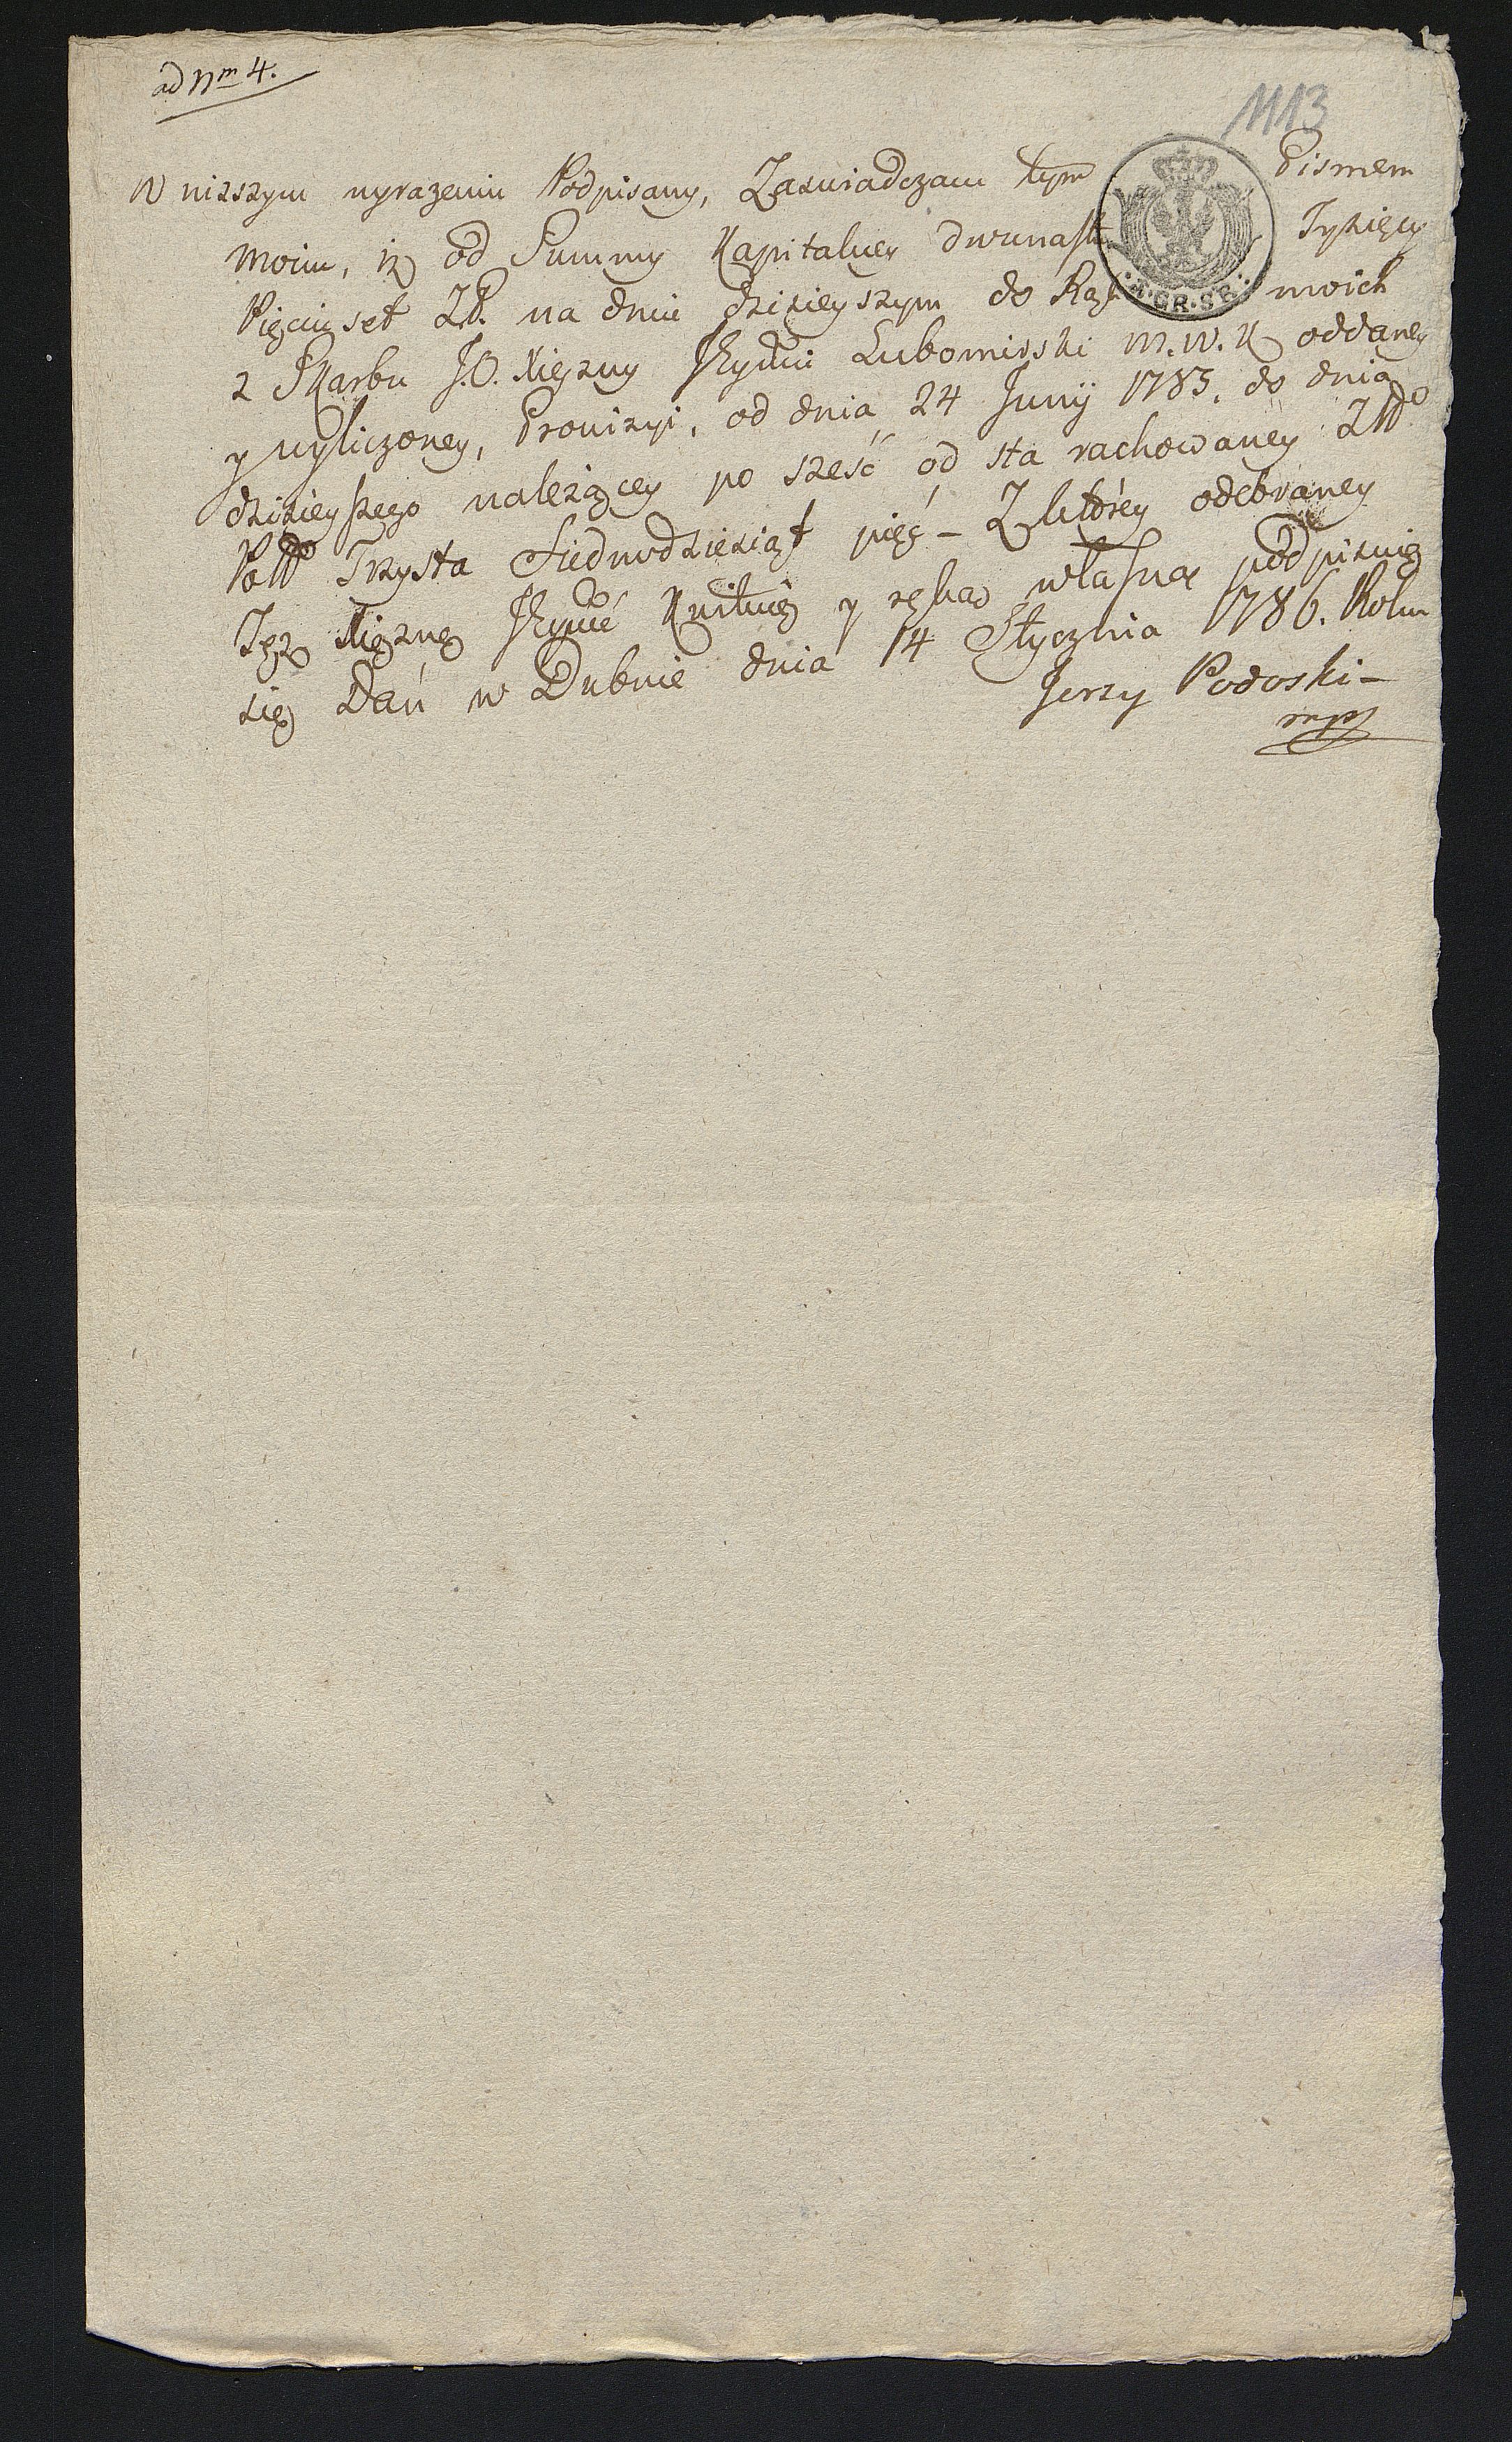 ad Nm 4.
1113
W niższym wyrażeniu Podpisany, Zaświadczam tym Pismem
moim, iż od Summy Kapitalney dwunastu Tysięcy
Pięciuset Zł. na dniu dzisieyszym do Rąk moich
z Skarbu J.O. Xiężny Jeymci Lubomirski M.W.K oddaney
y wyliczoney, Prowizyi, od dnia 24 Junij 1785. do dnia
dzisieyszego należącey po sześć od sta rachowaney
Trzysta Siedmdziesiąt pięć – Z którey odebraney
Tęż Xiężnę Jeymć Kwituię y ręką własną podpisuię
się Dań w Dubnie dnia 14 Stycznia 1786. Roku
Jerzy Podoski –
mp
GR. SR.